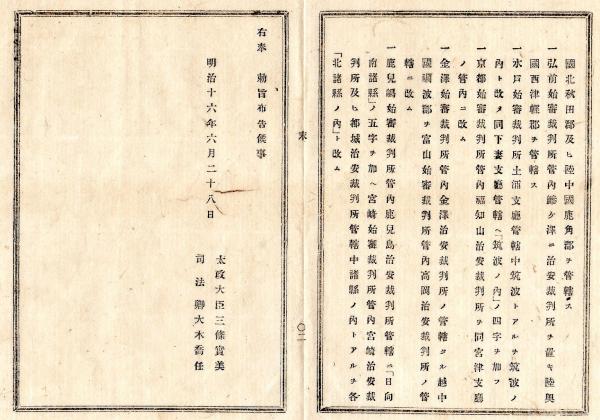 國北秋田郡及ヒ陸中國鹿角郡ヲ管轄ス
一弘前始審裁判所管內鰺ケ澤ニ治安裁判所ヲ置キ陸奧
國西津輕郡ヲ管轄ス
一水戶始審裁判所土浦支廳管轄中筑波トアルヲ筑波ノ
內ト改メ同下妻支廳管轄ヘ「筑波ノ內」ノ四字ヲ加フ
一京都始審裁判所管內福知山治安裁判所ヲ同宮津支廳
ノ管內ニ改ム
一金澤始審裁判所管內金澤治安裁判所ノ管轄タル越中
國礪波郡ヲ富山始審裁判所管內高岡治安裁判所ノ管
轄ニ改ム
一鹿兒嶋始審裁判所管內鹿兒島治安裁判所管轄ニ「日向
南諸縣」ノ五字ヲ加ヘ宮崎始審裁判所管內宮崎治安裁
判所及ヒ都城治安裁判所管轄中諸縣ノ內トアルヲ各
「北諸縣ノ內」ト改ム
右奉 勅旨布告候事
明治十六年六月二十八日
太政大臣三條實美
司法卿大木喬任